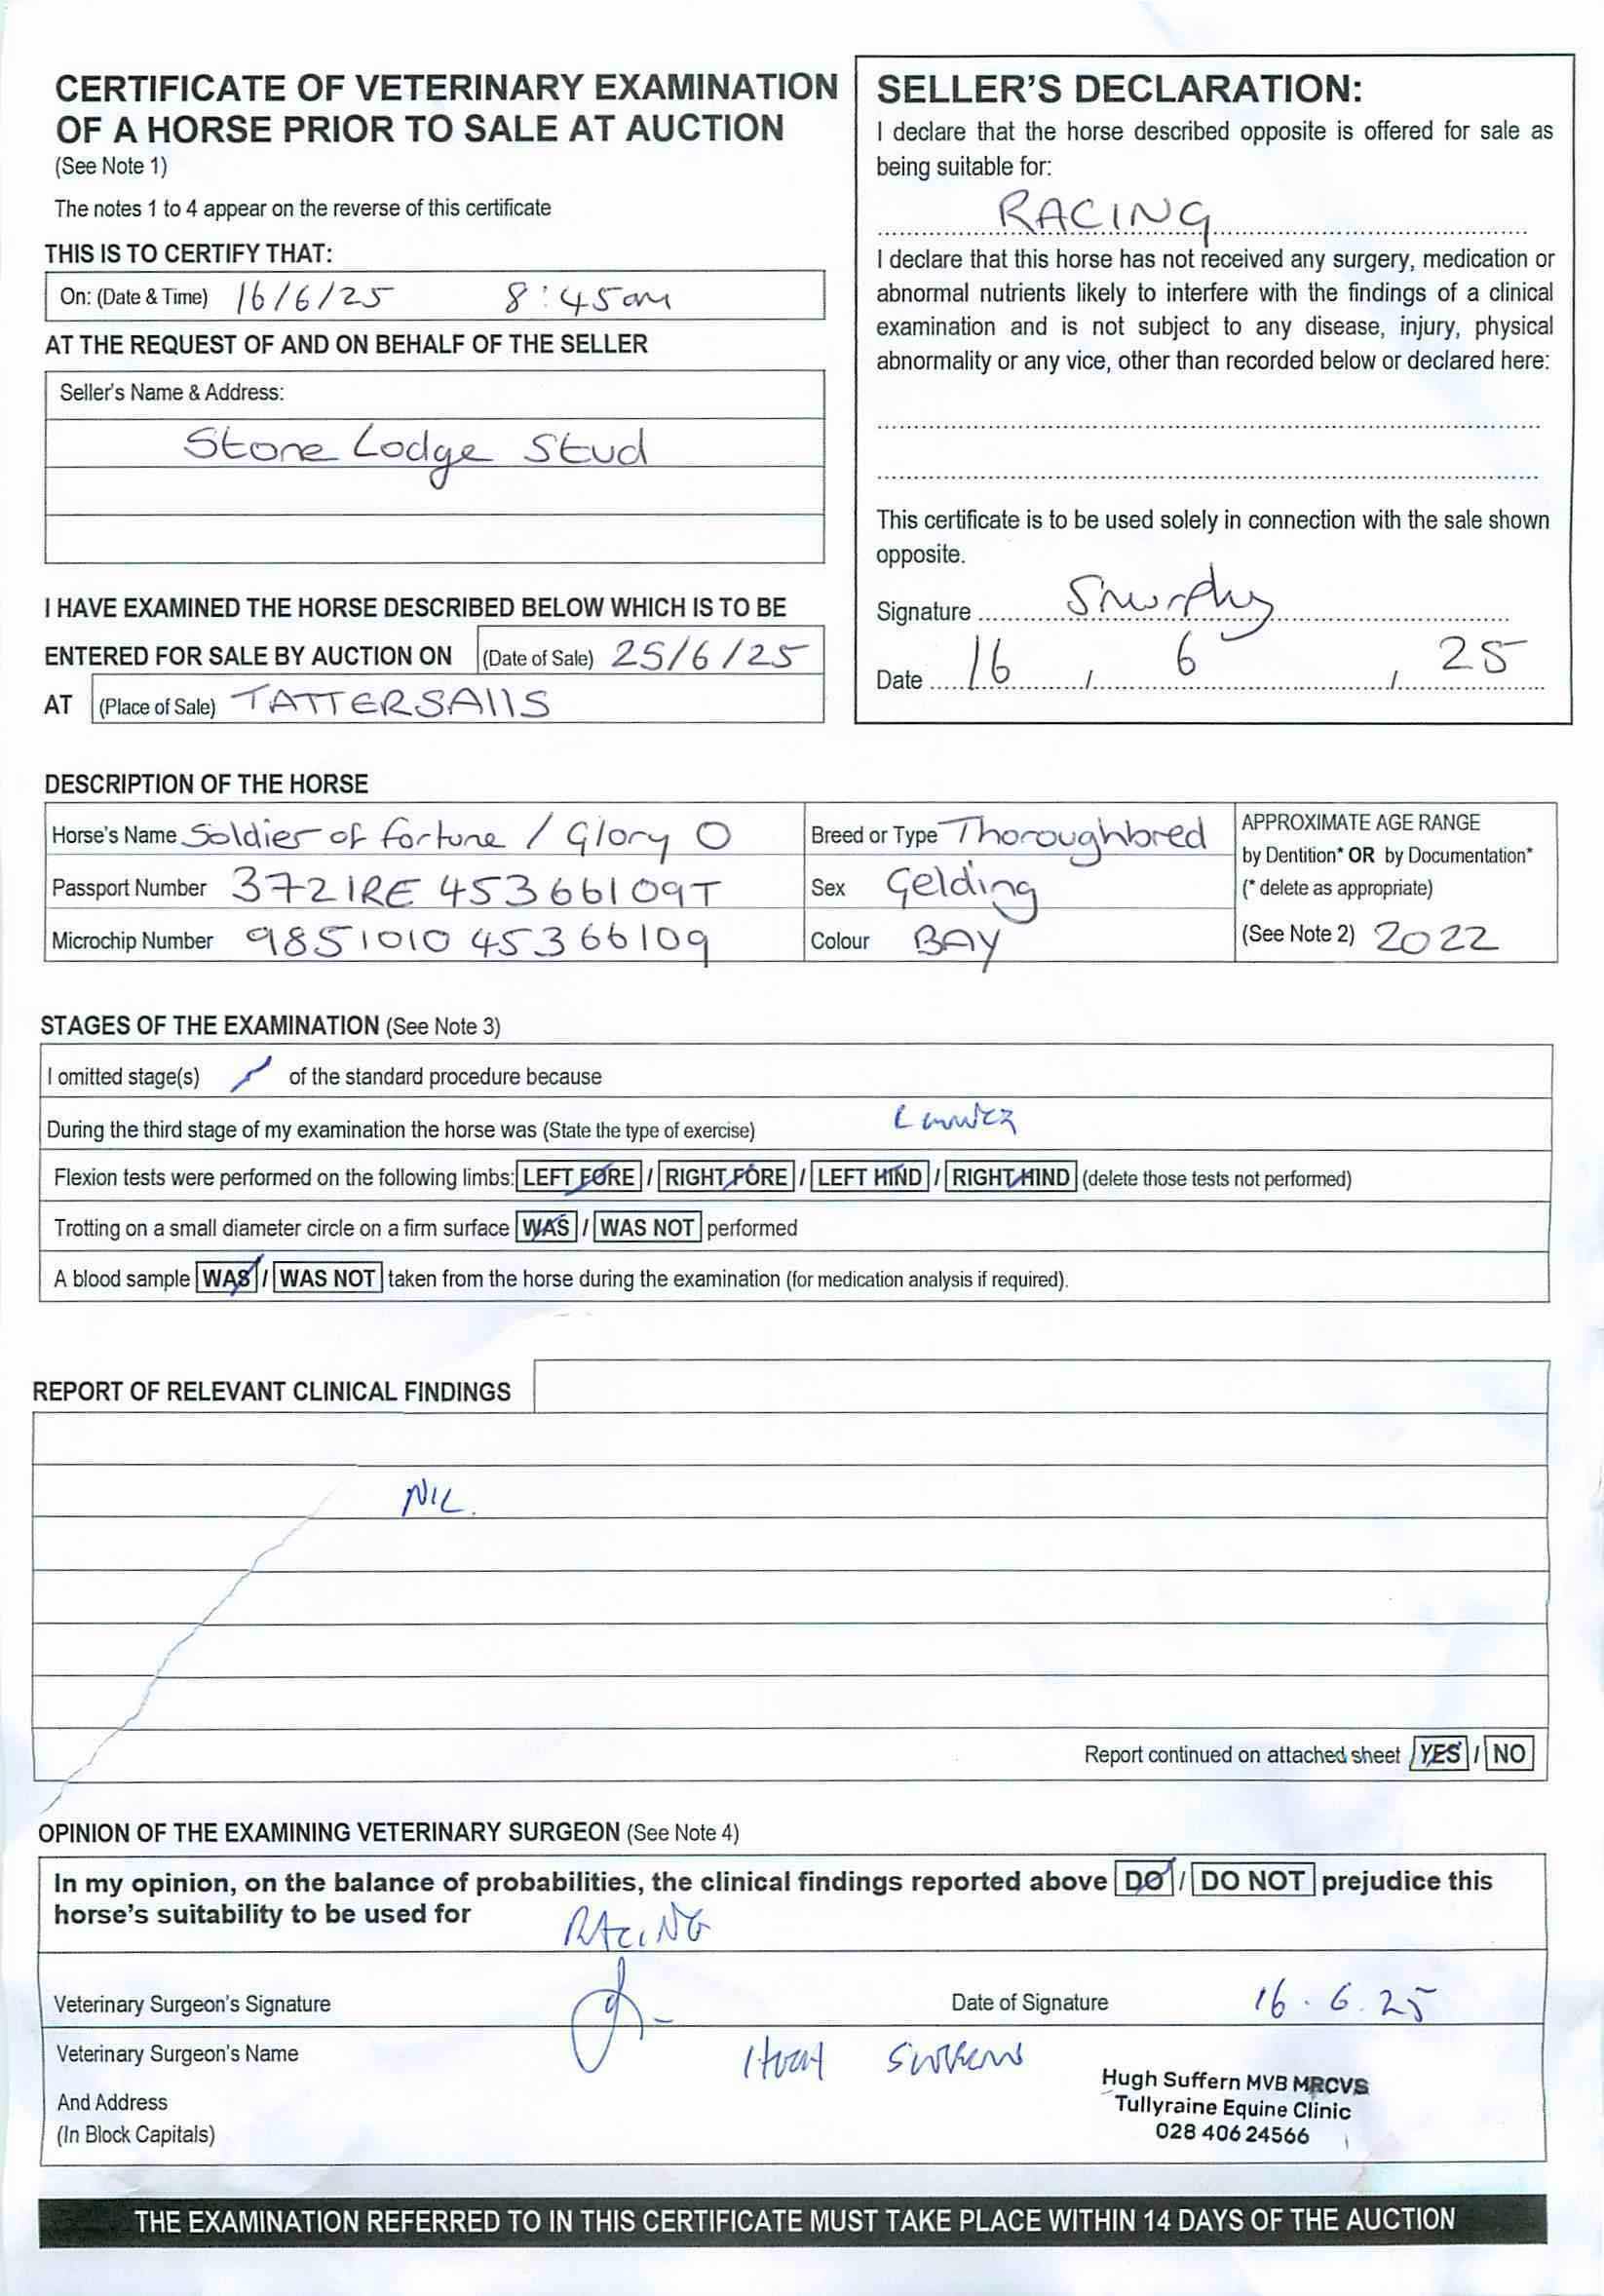 CERTIFICATE OF VETERINARY EXAMINATION
OF A HORSE PRIOR TO SALE AT AUCTION
(See Note 1)
The notes 1 to 4 appear on the reverse of this certificate
THIS IS TO CERTIFY THAT:
On: (Date & Time) 16/6/25 8:45am
AT THE REQUEST OF AND ON BEHALF OF THE SELLER
Seller's Name & Address:
Stone Lodge Stud
I HAVE EXAMINED THE HORSE DESCRIBED BELOW WHICH IS TO BE
ENTERED FOR SALE BY AUCTION ON (Date of Sale) 25/6/25
AT (Place of Sale) TATTERSAllS
SELLER'S DECLARATION:
I declare that the horse described opposite is offered for sale as
being suitable for:
RACING
I declare that this horse has not received any surgery, medication or
abnormal nutrients likely to interfere with the findings of a clinical
examination and is not subject to any disease, injury, physical
abnormality or any vice, other than recorded below or declared here:
This certificate is to be used solely in connection with the sale shown
opposite.
Signature SMurphy
Date 16 / 6 / 25
DESCRIPTION OF THE HORSE
Horse's Name Soldier of fortune / Glory O
Passport Number 372IRE 45366109T
Microchip Number 985101045366109
Breed or Type Thoroughbred
Sex Gelding
Colour BAY
APPROXIMATE AGE RANGE
by Dentition* OR by Documentation*
(* delete as appropriate)
(See Note 2) 2022
STAGES OF THE EXAMINATION (See Note 3)
I omitted stage(s) / of the standard procedure because
During the third stage of my examination the horse was (State the type of exercise)
Flexion tests were performed on the following limbs: LEFT FORE / RIGHT FORE / LEFT HIND / RIGHT HIND (delete those tests not performed)
Trotting on a small diameter circle on a firm surface WAS / WAS NOT performed
A blood sample WAS / WAS NOT taken from the horse during the examination (for medication analysis if required).
REPORT OF RELEVANT CLINICAL FINDINGS
NIL.
Report continued on attached sheet YES / NO
OPINION OF THE EXAMINING VETERINARY SURGEON (See Note 4)
In my opinion, on the balance of probabilities, the clinical findings reported above DO / DO NOT prejudice this
horse's suitability to be used for RACING
Veterinary Surgeon's Signature
Date of Signature 16.6.25
Veterinary Surgeon's Name Hugh Suffern
And Address
(In Block Capitals)
Hugh Suffern MVB MRCVS
Tullyraine Equine Clinic
028 406 24566
THE EXAMINATION REFERRED TO IN THIS CERTIFICATE MUST TAKE PLACE WITHIN 14 DAYS OF THE AUCTION